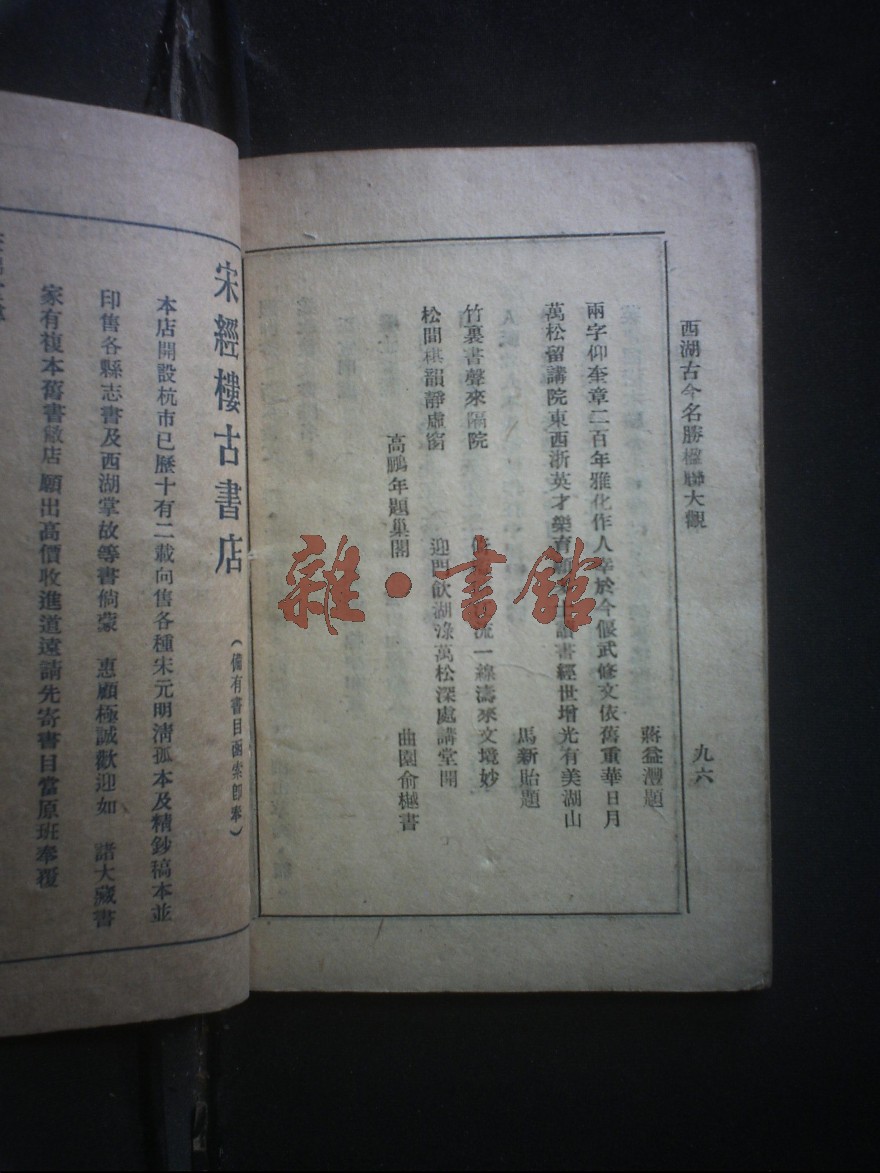 西湖古今名勝楹聯大觀
九六
蔣益澧題
兩字仰奎章二百年雅化作人幸於今偃武修文依舊重華日月
萬松留講院東西浙英才樂育 讀書經世增光有美湖山
馬新貽題
竹裏書聲來隔院 流一線濤來文境妙
松間棋韻靜虛窗 迎門飲湖淥萬松深處講堂開
高鵬年題巢閣 曲園俞樾書
雜·書館
宋經樓古書店
（備有書目函索卽奉）
本店開設杭市已歷十有二載向售各種宋元明清孤本及精鈔稿本並
印售各縣志書及西湖掌故等書倘蒙 惠顧極誠歡迎如 諸大藏書
家有複本舊書敝店 願出高價收進道遠請先寄書目當原班奉覆